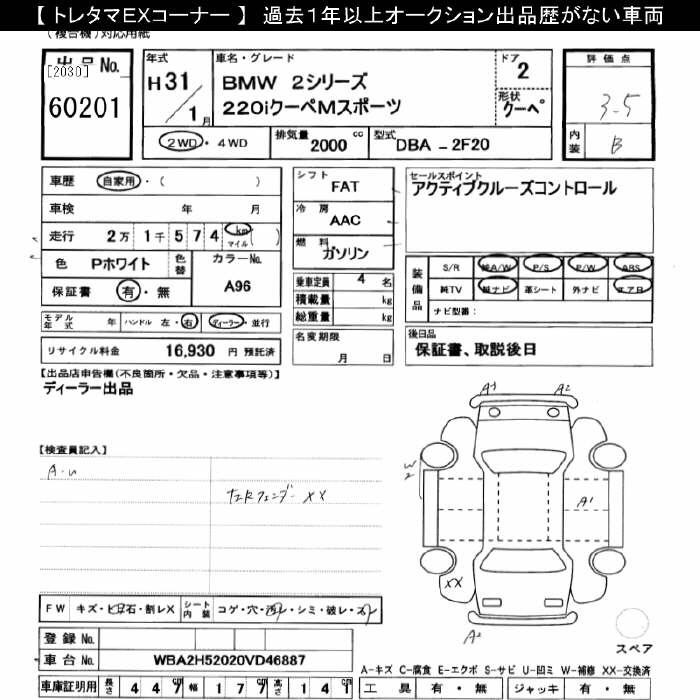 【 トレタマEXコーナー 】 過去1年以上オークション出品歴がない車両
(複合機)対応用紙
出品No.
[2030]
60201
年式
H 31 / 1 月
車名・グレード
BMW 2シリーズ
220iクーペMスポーツ
ドア
2
形状
クーペ
2WD・4WD
排気量 2000 cc
型式 DBA - 2F20
評価点
3.5
内装 B
車歴 自家用・( )
車検 年 月
走行 2万 1千 5 7 4 km マイル ( )
色 Pホワイト 色替
カラーNo.
A96
保証書 有・無
モデル年式 年 ハンドル 左・右 ディーラー・並行
リサイクル料金 16,930 円 預託済
シフト
FAT
冷房
AAC
燃料
ガソリン
乗車定員 4 名
積載量 kg
総重量 kg
名変期限
月 日
セールスポイント
アクティブクルーズコントロール
装備品
S/R 純A/W P/S P/W ABS
純TV 純ナビ 革シート 外ナビ エアB
ナビ型番:
後日品
保証書、取説後日
【出品店申告欄(不良箇所・欠品・注意事項等)】
ディーラー出品
【検査員記入】
左Rフェンダー XX
A1 A2
W2
A1
XX
A2
スペア
FW キズ・ヒ石・割レX シート内装 コゲ・穴・汚レ・シミ・破レ・スレ
登録 No.
車台 No. WBA2H52020VD46887
車庫証明用 長さ 4 4 7 cm 幅 1 7 7 cm 高さ 1 4 1 cm
A-キズ C-腐食 E-エクボ S-サビ U-凹ミ W-補修 XX-交換済
工具 有・無 ジャッキ 有・無